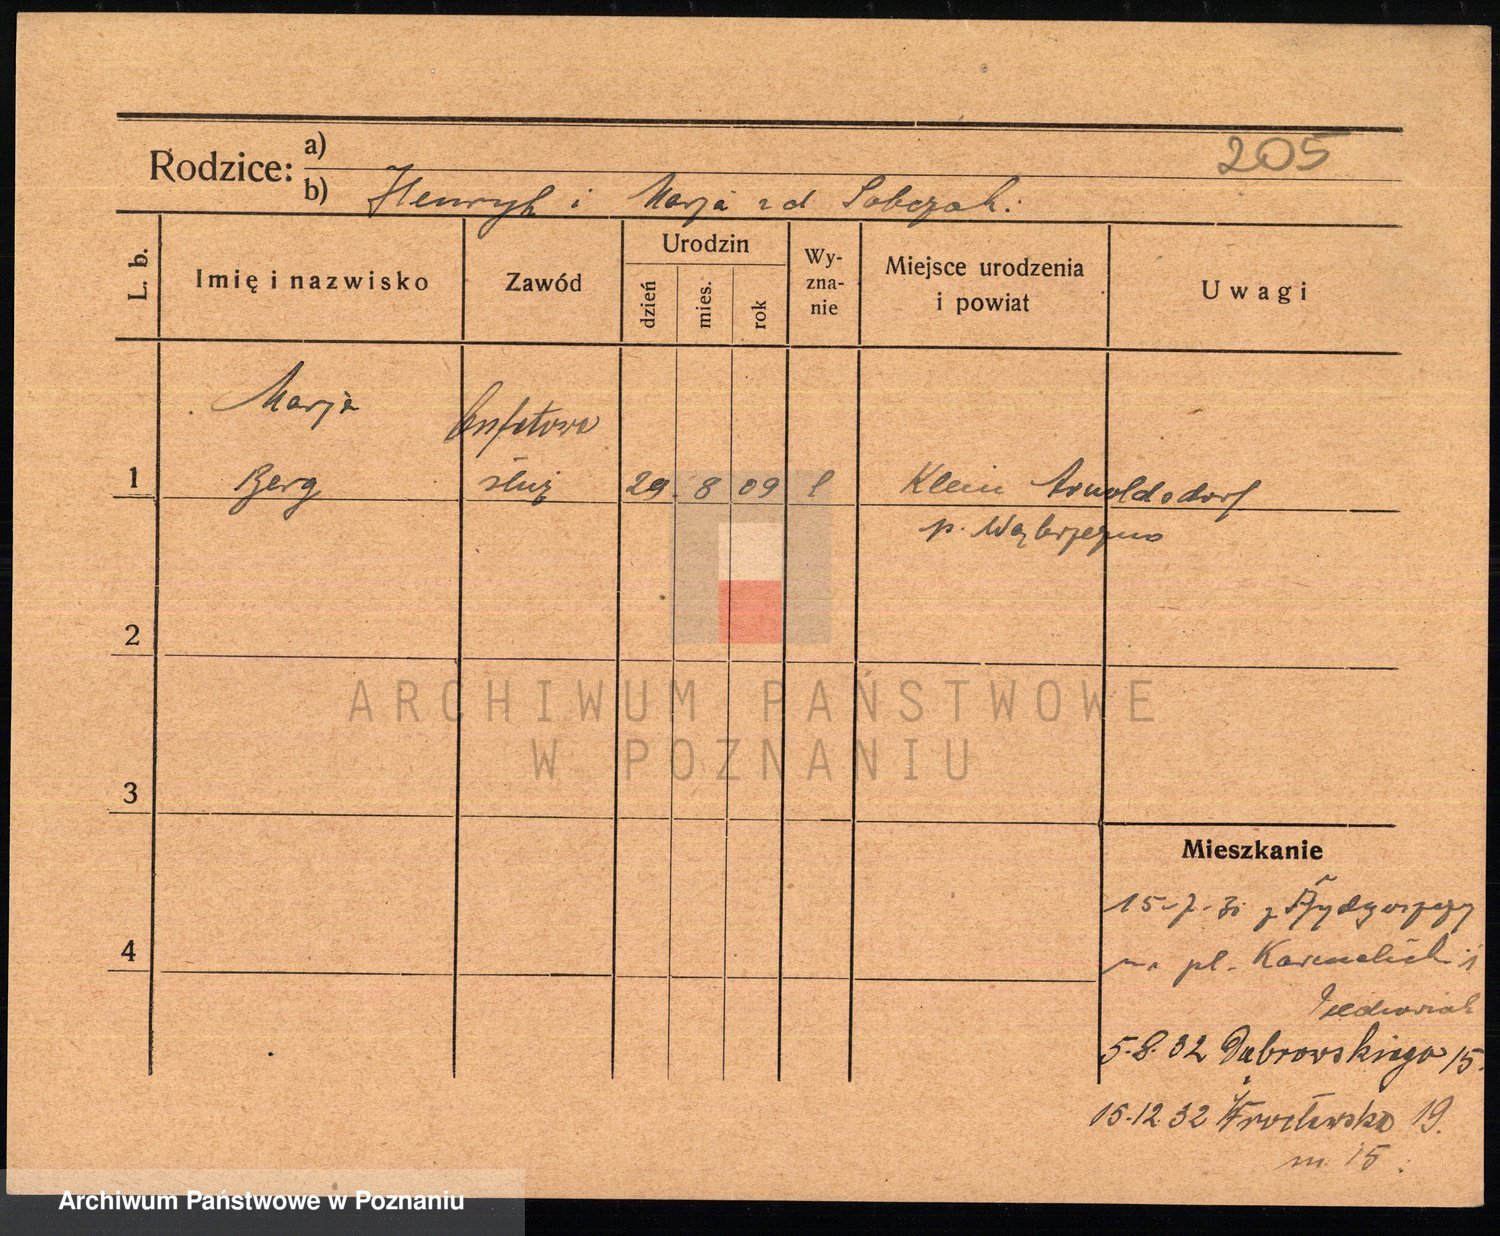 205
Rodzice: a)
b) Henryk i Marja z d Sobczak.
L. b.
Imię i nazwisko
Zawód
Urodzin
dzień
mies.
rok
Wy-
zna-
nie
Miejsce urodzenia
i powiat
Uwagi
Marja
bufetowa
1 Berg służ 29. 8 09 Klein Arnoldsdorf
p. Wąbrzeźno
2
ARCHIWUM PAŃSTWOWE
W POZNANIU
3
Mieszkanie
15-7-31 z Bydgoszczy
4
pl. Karmelicki 1
5.8.32 Dąbrowskiego 15.
15.12.32 Wrocławska 19.
m. 15.
Archiwum Państwowe w Poznaniu